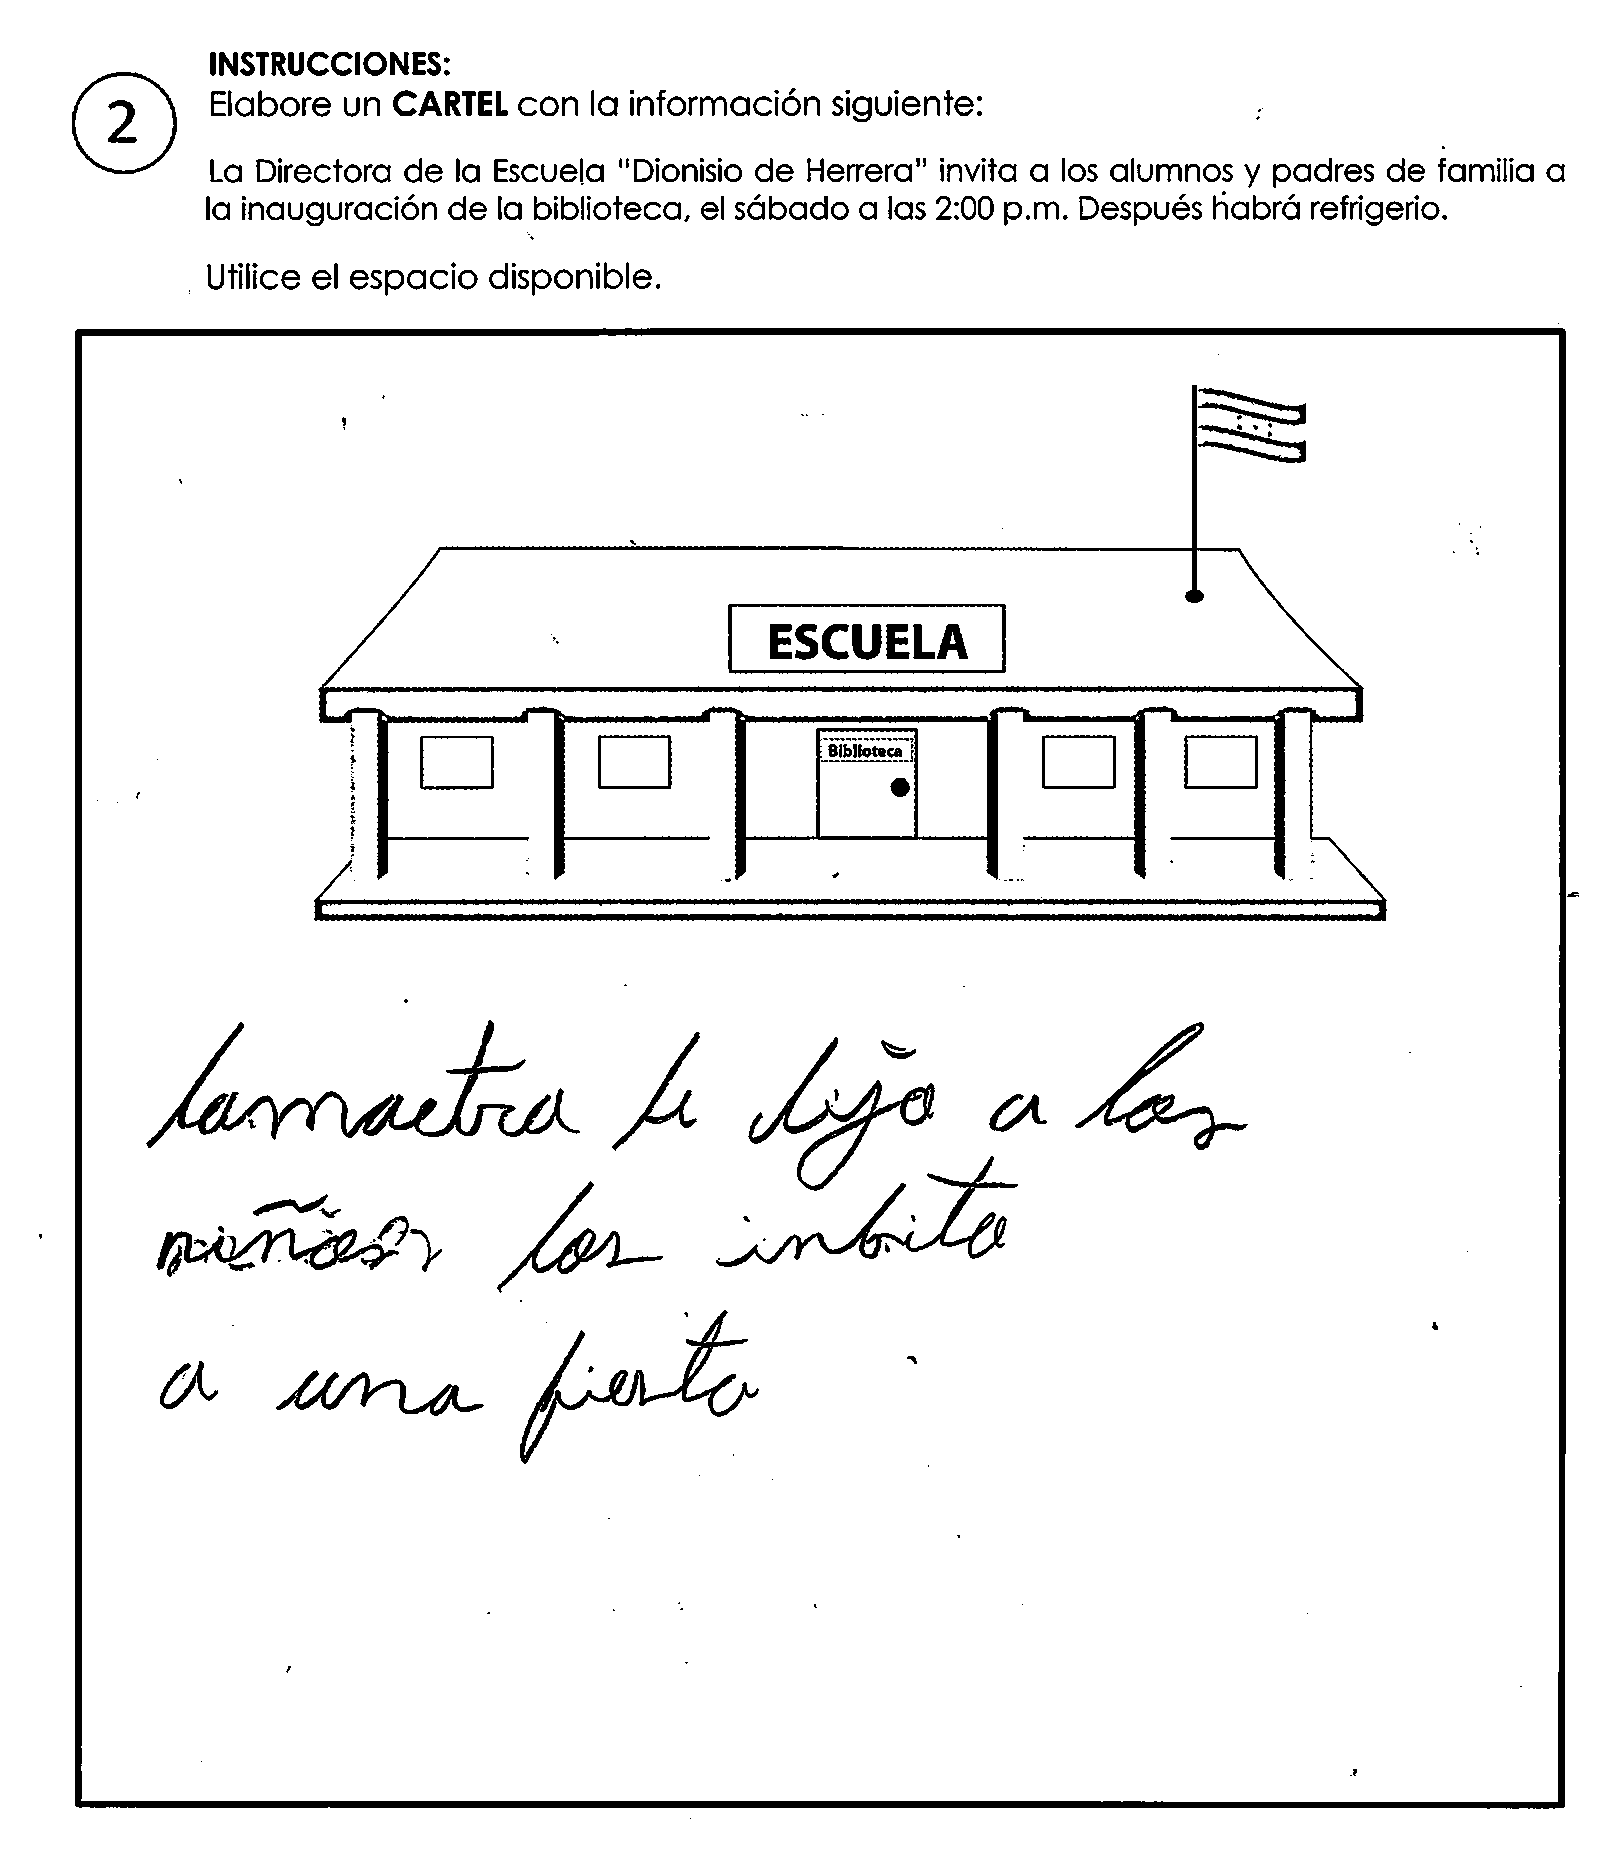 INSTRUCCIONES:
2
Elabore un CARTEL con la información siguiente:
La Directora de la Escuela "Dionisio de Herrera" invita a los alumnos y padres de familia a
la inauguración de la biblioteca, el sábado a las 2:00 p.m. Después habrá refrigerio.
Utilice el espacio disponible.
ESCUELA
Biblioteca
lamaetra le dijo a los
niños los inbita
a una fiesta